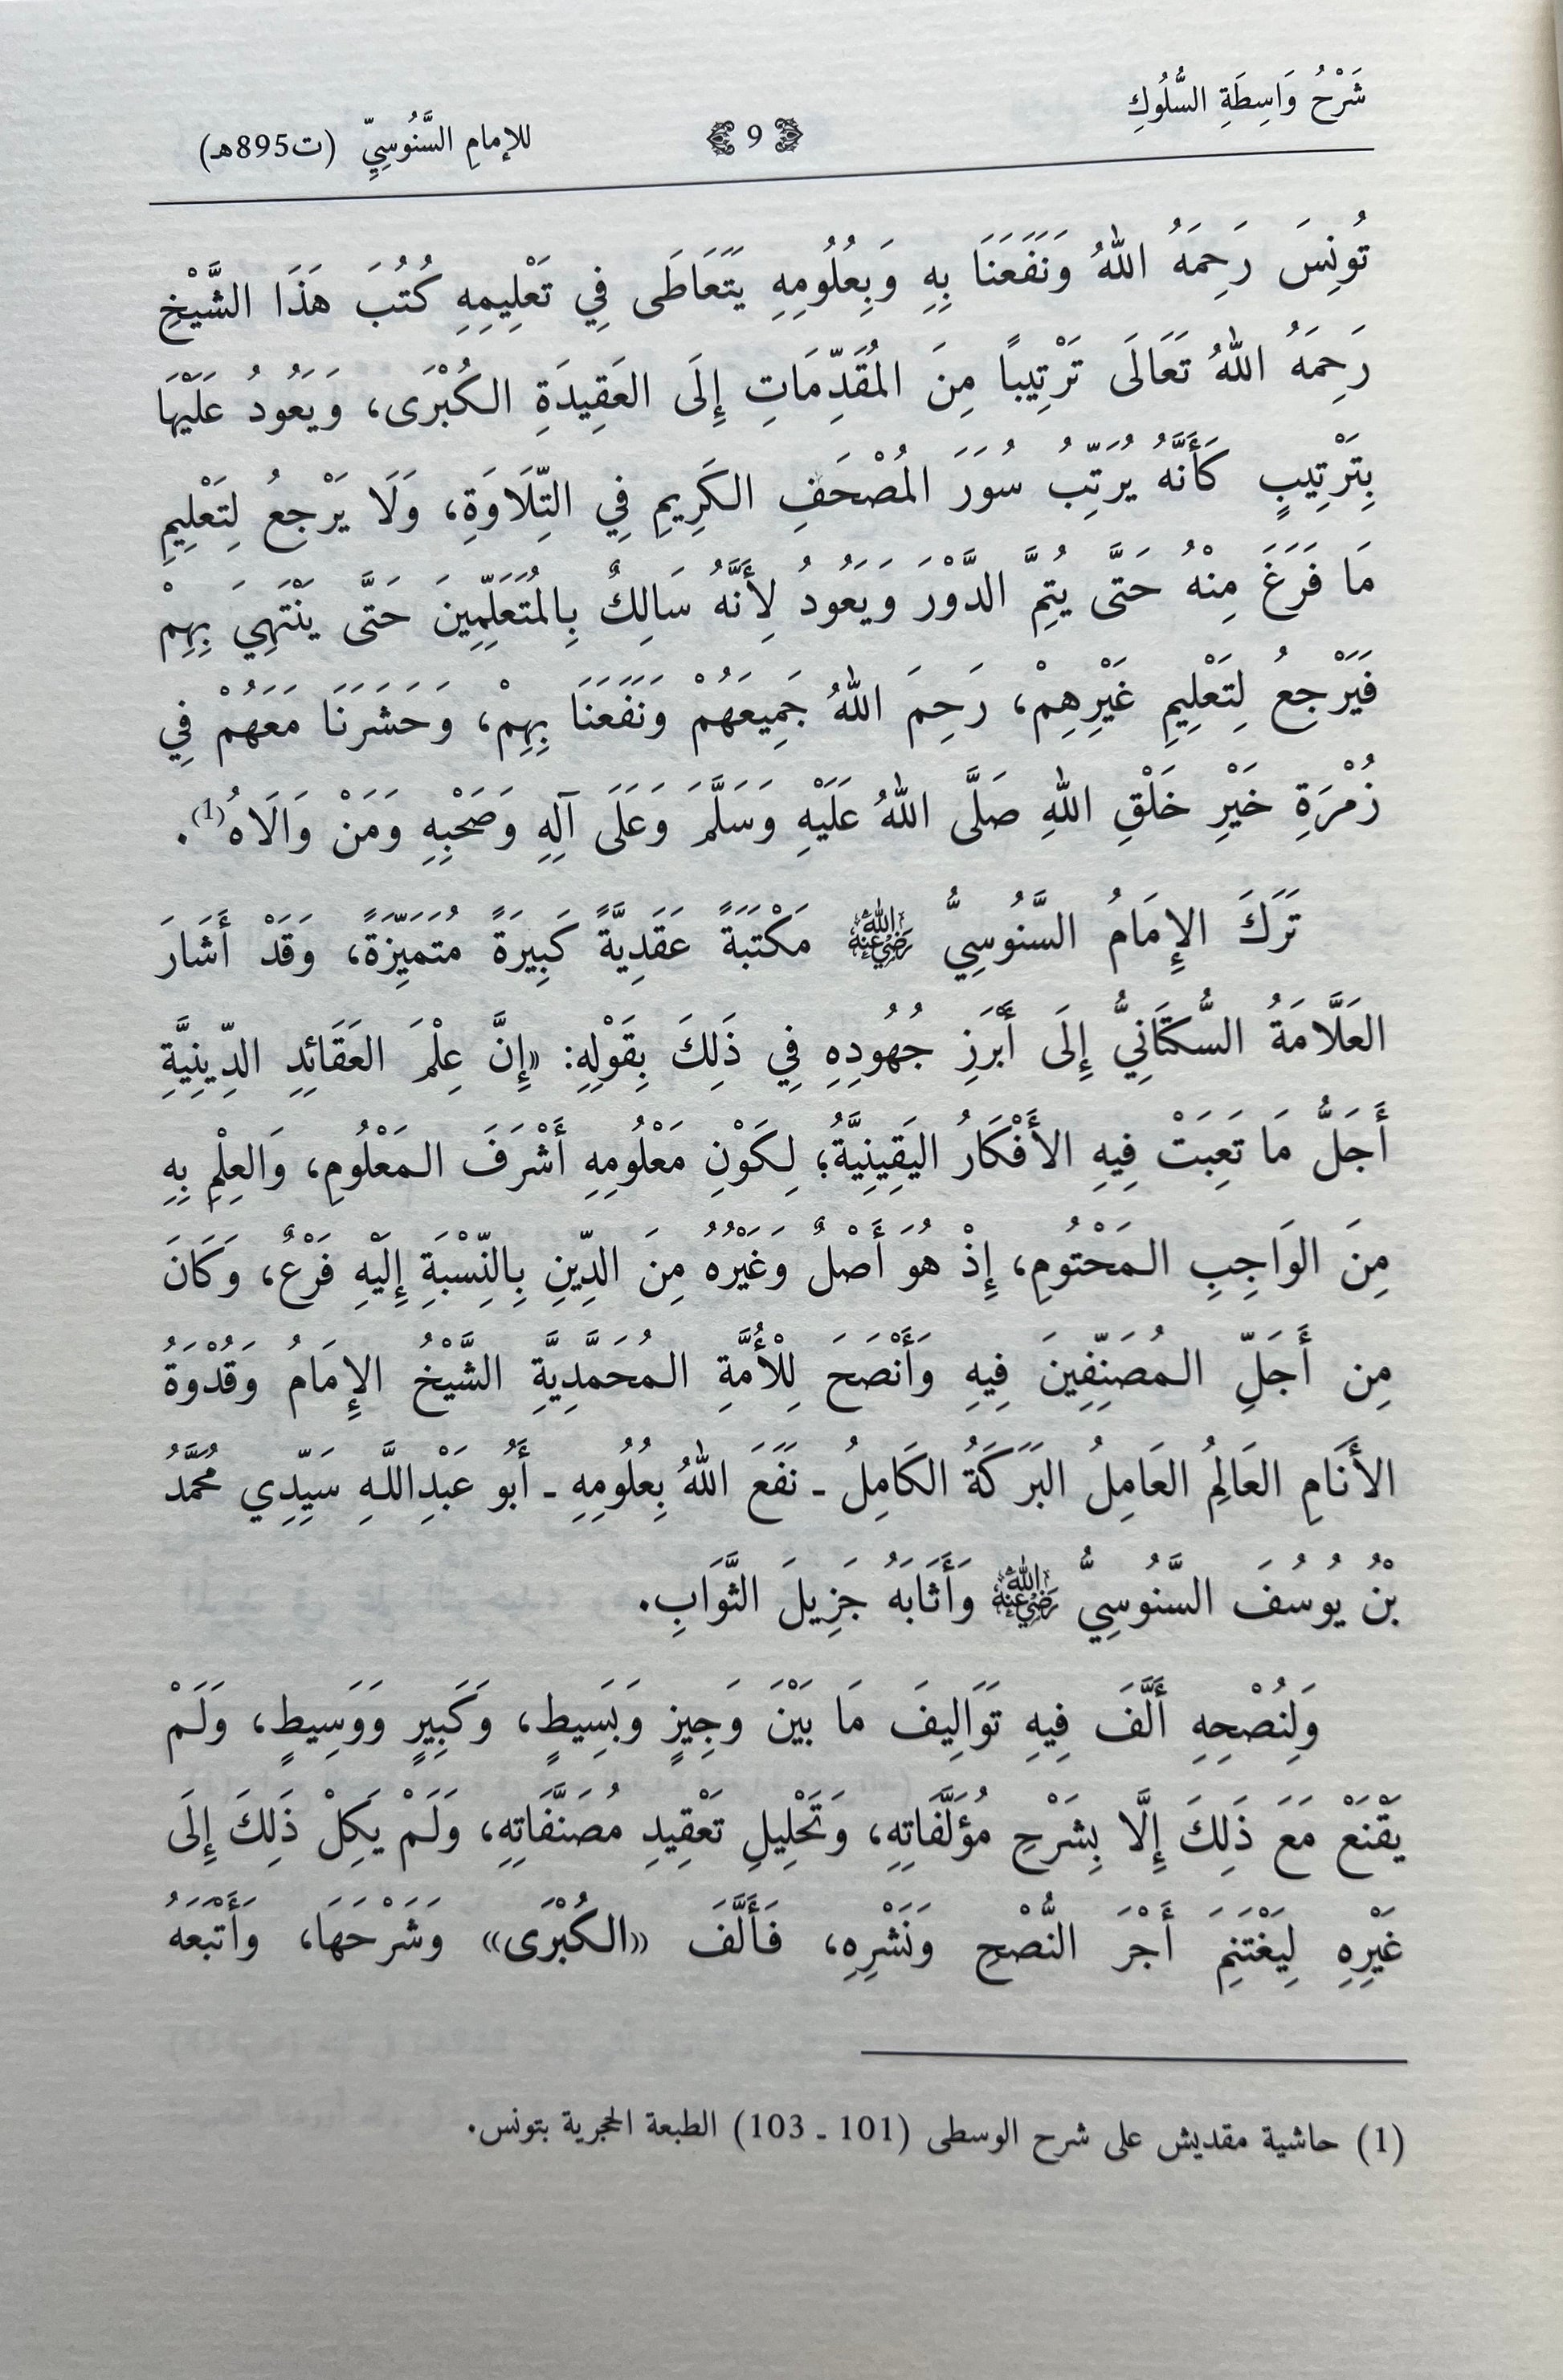 شَرْحُ وَاسِطَةِ السُّلُوكِ
9
للإمامِ السَّنُوسِيِّ (ت895هـ)
تُونِسَ رَحِمَهُ اللهُ وَنَفَعَنَا بِهِ وَبِعُلُومِهِ يَتَعَاطَى فِي تَعْلِيمِهِ كُتُبَ هَذَا الشَّيْخِ
رَحِمَهُ اللهُ تَعَالَى تَرْتِيباً مِنَ المُقَدِّمَاتِ إِلَى العَقِيدَةِ الكُبْرَى، وَيَعُودُ عَلَيْهَا
بِتَرْتِيبٍ كَأَنَّهُ يُرَتِّبُ سُوَرَ المُصْحَفِ الكَرِيمِ فِي التِّلَاوَةِ، وَلَا يَرْجِعُ لِتَعْلِيمِ
مَا فَرَغَ مِنْهُ حَتَّى يُتِمَّ الدَّوْرَ وَيَعُودُ لِأَنَّهُ سَالِكٌ بِالمُتَعَلِّمِينَ حَتَّى يَنْتَهِيَ بِهِمْ
فَيَرْجِعُ لِتَعْلِيمِ غَيْرِهِمْ، رَحِمَ اللهُ جَمِيعَهُمْ وَنَفَعَنَا بِهِمْ، وَحَشَرَنَا مَعَهُمْ فِي
زُمْرَةِ خَيْرِ خَلْقِ اللهِ صَلَّى اللهُ عَلَيْهِ وَسَلَّمَ وَعَلَى آلِهِ وَصَحْبِهِ وَمَنْ وَالَاهُ(1).
تَرَكَ الإِمَامُ السَّنُوسِيُّ رَضِيَ اللهُ عَنْهُ مَكْتَبَةً عَقَدِيَّةً كَبِيرَةً مُتَمَيِّزَةً، وَقَدْ أَشَارَ
العَلَّامَةُ السُّكتَانِيُّ إِلَى أَبْرَزِ جُهُودِهِ فِي ذَلِكَ بِقَوْلِهِ: «إِنَّ عِلْمَ العَقَائِدِ الدِّينِيَّةِ
أَجَلُّ مَا تَعِبَتْ فِيهِ الأَفْكَارُ اليَقِينِيَّةُ؛ لِكَوْنِ مَعْلُومِهِ أَشْرَفَ المَعْلُومِ، وَالعِلْمِ بِهِ
مِنَ الوَاجِبِ المَحْتُومِ، إِذْ هُوَ أَصْلٌ وَغَيْرُهُ مِنَ الدِّينِ بِالنِّسْبَةِ إِلَيْهِ فَرْعٌ، وَكَانَ
مِن أَجَلِّ المُصَنِّفِينَ فِيهِ وَأَنْصَحَ لِلْأُمَّةِ المُحَمَّدِيَّةِ الشَّيْخُ الإِمَامُ وَقُدْوَةُ
الأَنَامِ العَالِمُ العَامِلُ البَرَكَةُ الكَامِلُ ـ نَفَعَ اللهُ بِعُلُومِهِ ـ أَبُو عَبْدِاللَّهِ سَيِّدِي مُحَمَّدُ
بْنُ يُوسُفَ السَّنُوسِيُّ رَضِيَ اللهُ عَنْهُ وَأَثَابَهُ جَزِيلَ الثَّوَابِ.
وَلِنُصْحِهِ أَلَّفَ فِيهِ تَوَالِيفَ مَا بَيْنَ وَجِيزٍ وَبَسِيطٍ، وَكَبِيرٍ وَوَسِيطٍ، وَلَمْ
يَقْنَعْ مَعَ ذَلِكَ إِلَّا بِشَرْحِ مُؤَلَّفَاتِهِ، وَتَحْلِيلِ تَعْقِيدِ مُصَنَّفَاتِهِ، وَلَمْ يَكِلْ ذَلِكَ إِلَى
غَيْرِهِ لِيَغْتَنِمَ أَجْرَ النُّصْحِ وَنَشْرِهِ، فَأَلَّفَ «الكُبْرَى» وَشَرْحَهَا، وَأَتْبَعَهُ
(1) حاشية مقديش على شرح الوسطى (101 ـ 103) الطبعة الحجرية بتونس.